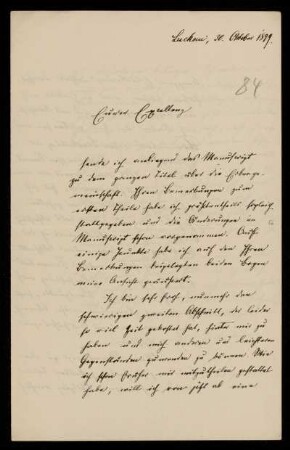 Luckau, 30. Oktober 1899.
84
Eurer Exzellenz
sende ich anliegend das Manuskript
zu dem ganzen Titel über die Erbenge-
meinschaft. Ihren Bemerkungen zum
ersten Theile habe ich größtentheils
stattgegeben und die Änderungen im
Manuskript schon vorgenommen. Auch
einige Punkte habe ich auf den Ihren
Bemerkungen beigelegten beiden Bogen
meine Ansicht geäussert.
Ich bin sehr froh, nunmehr den
schwierigen zweiten Abschnitt, der leider
so viel Zeit gekostet hat, hinter mir zu
haben und mich anderen und leichteren
Gegenständen zuwenden zu können. Wie
ich schon früher mir mitzutheilen gestattet
habe, will ich von jetzt ab eine